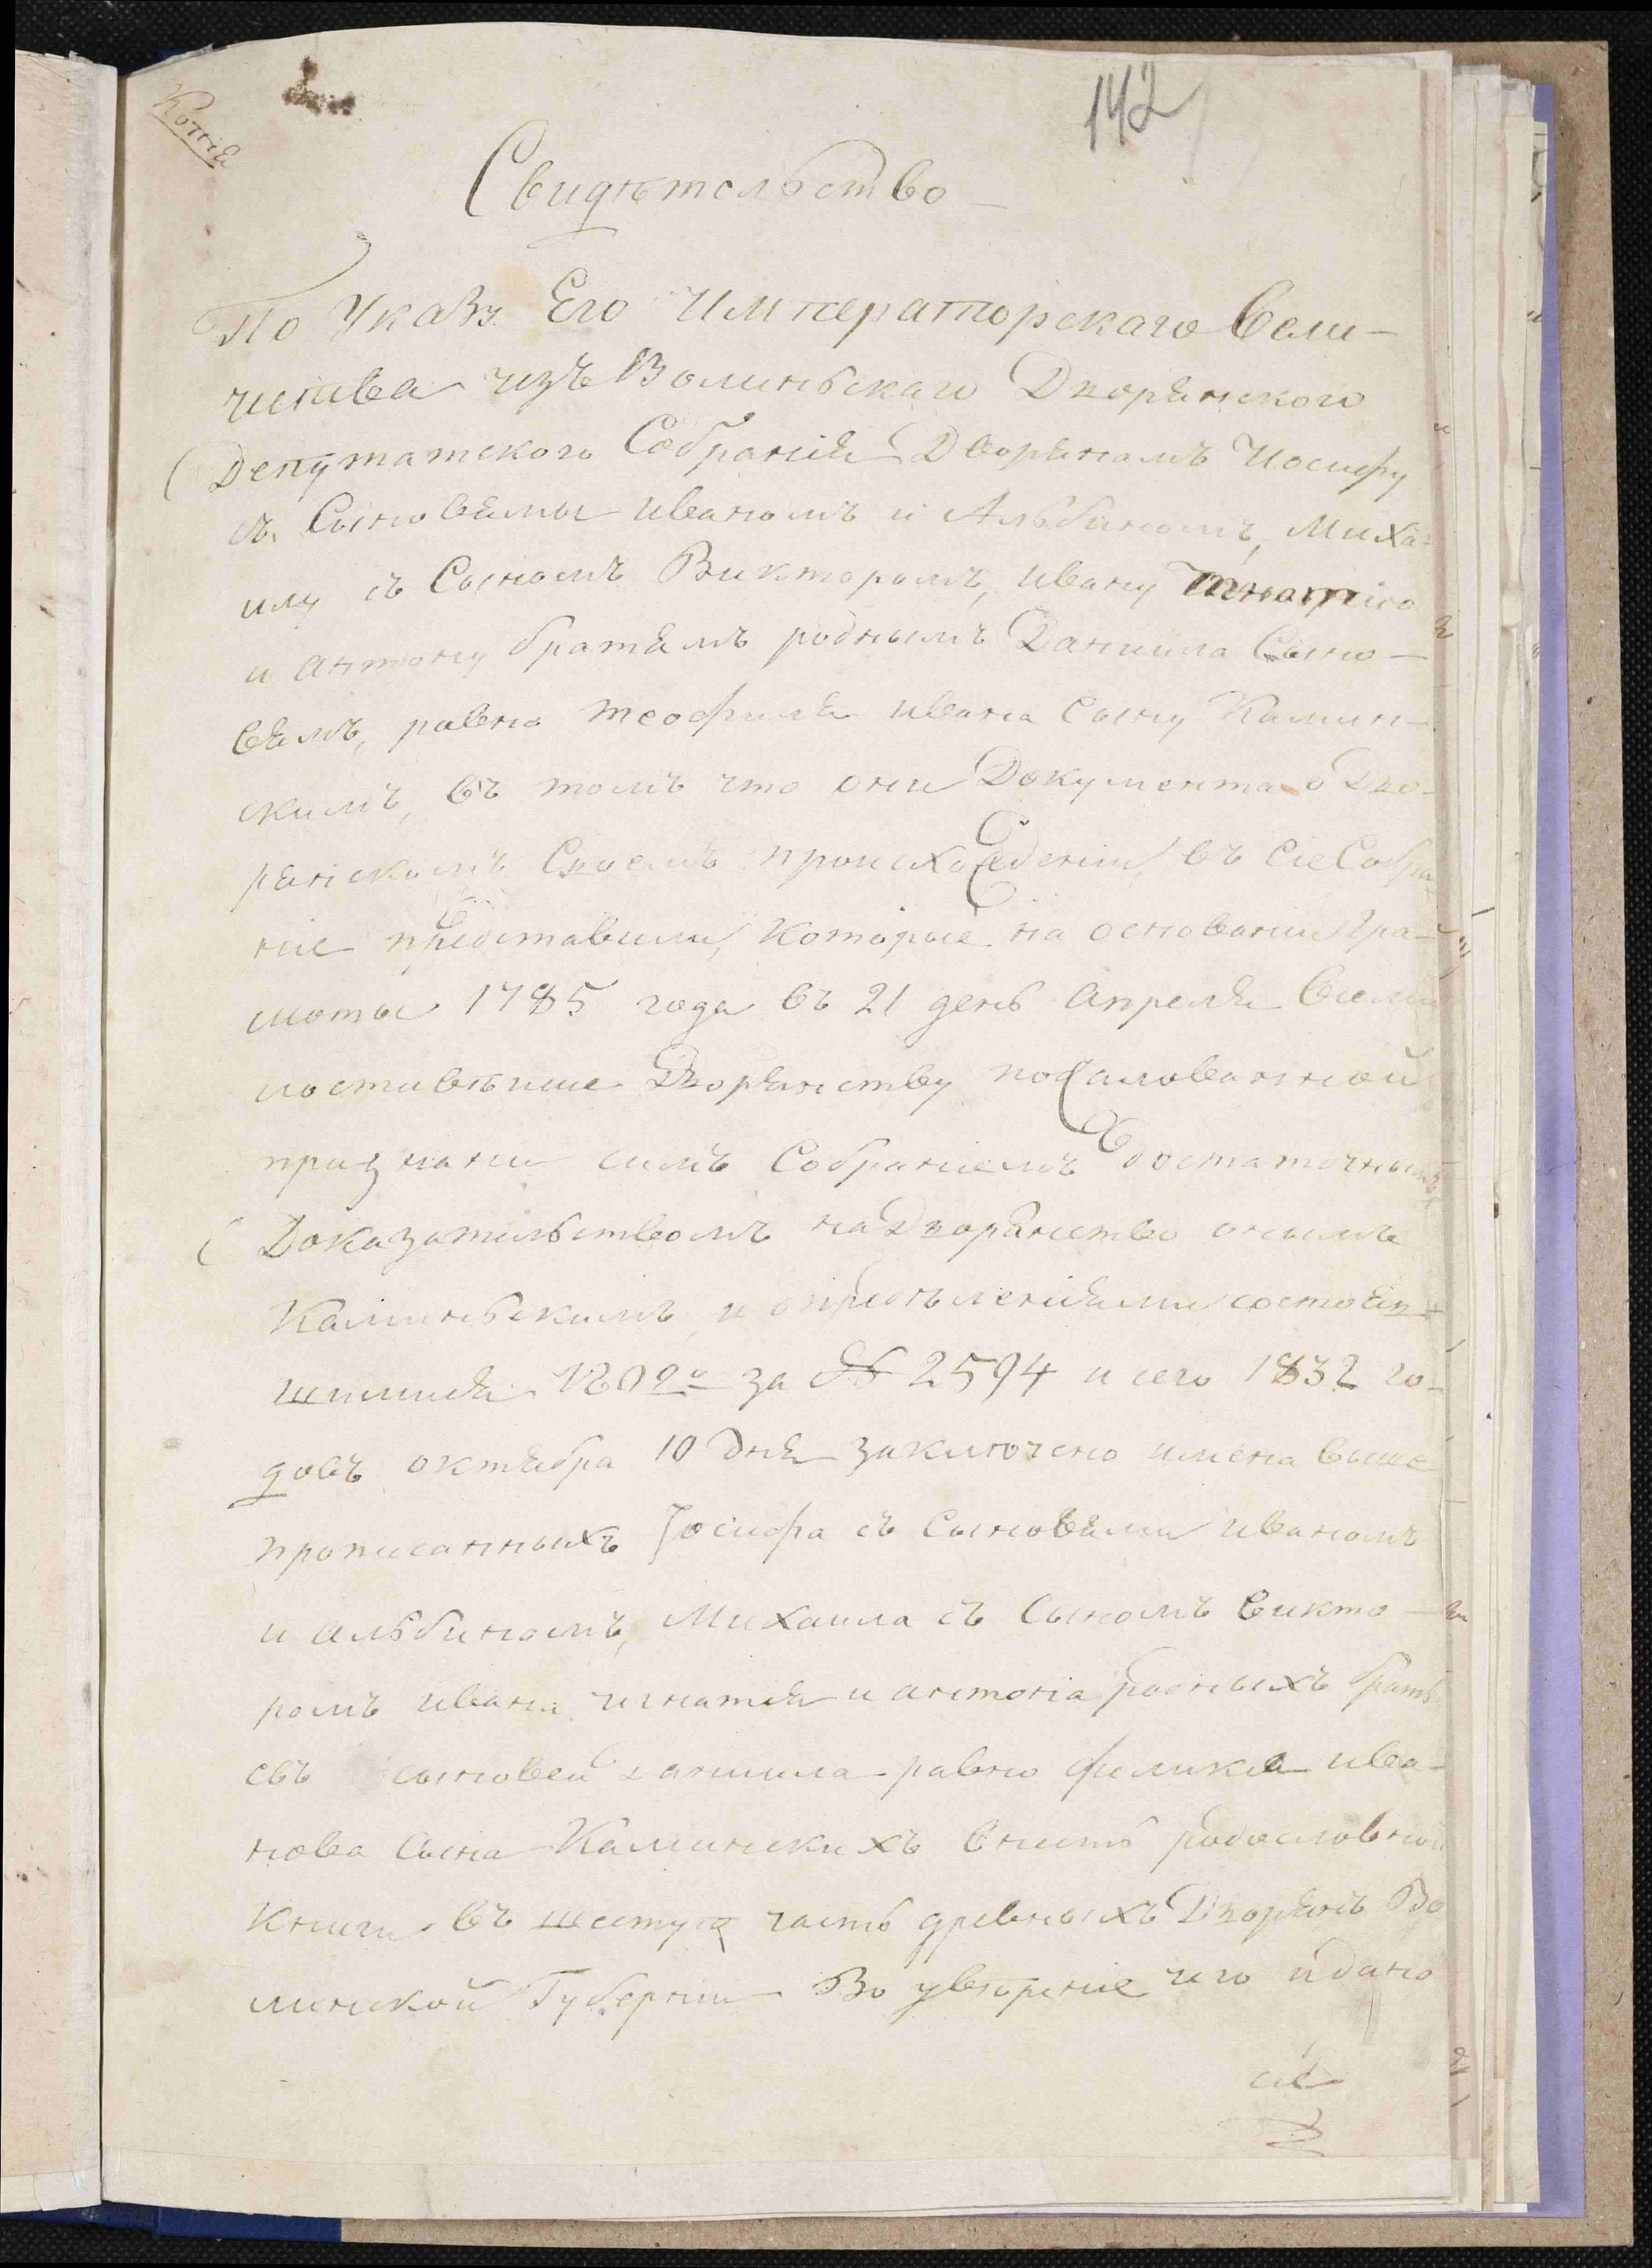 Копія
142
Свидѣтельство
По Указу Его Императорскаго Вели-
чества изъ Волинскаго Дворянского
Депутатского Собранія Дворянамъ Иосифу
съ Сыновями Иваномъ и Альбиномъ, Миха-
илу съ Сыномъ Викторомъ, Ивану
и антону братямъ роднымъ Даниила Сыно-
вямъ, равно Теофиля ивана Сыну Камин-
скимъ, въ томъ что они Документа о Дво-
рянскомъ Своемъ происхожденіи, въ сіе Собра-
ніе представили, Которые на основании Гра-
моты 1785 года въ 21 день апреля Всеми
лостивѣише Дворянству пожалованной
признани симъ Собраніемъ достаточнымъ
Доказательствомъ на Дворянство онымъ
Каминьскимъ, и опредѣленіями состояв-
шимися 1802го за № 2594 и сего 1832 го-
довъ октября 10 дня заключено имена выше
прописанныхъ Іосифа съ Сыновями иваномъ
и альбиномъ, Михаила съ Сыномъ викто-
ромъ ивана, игнатія и антонія родныхъ брать
евъ сыновей даниила равно феликса ива-
нова Сына Каминскихъ внесть родословной
Книги въ шестую часть древныхъ Дворянъ Во
линской Губернии Во увѣреніе чего и дано
сіе